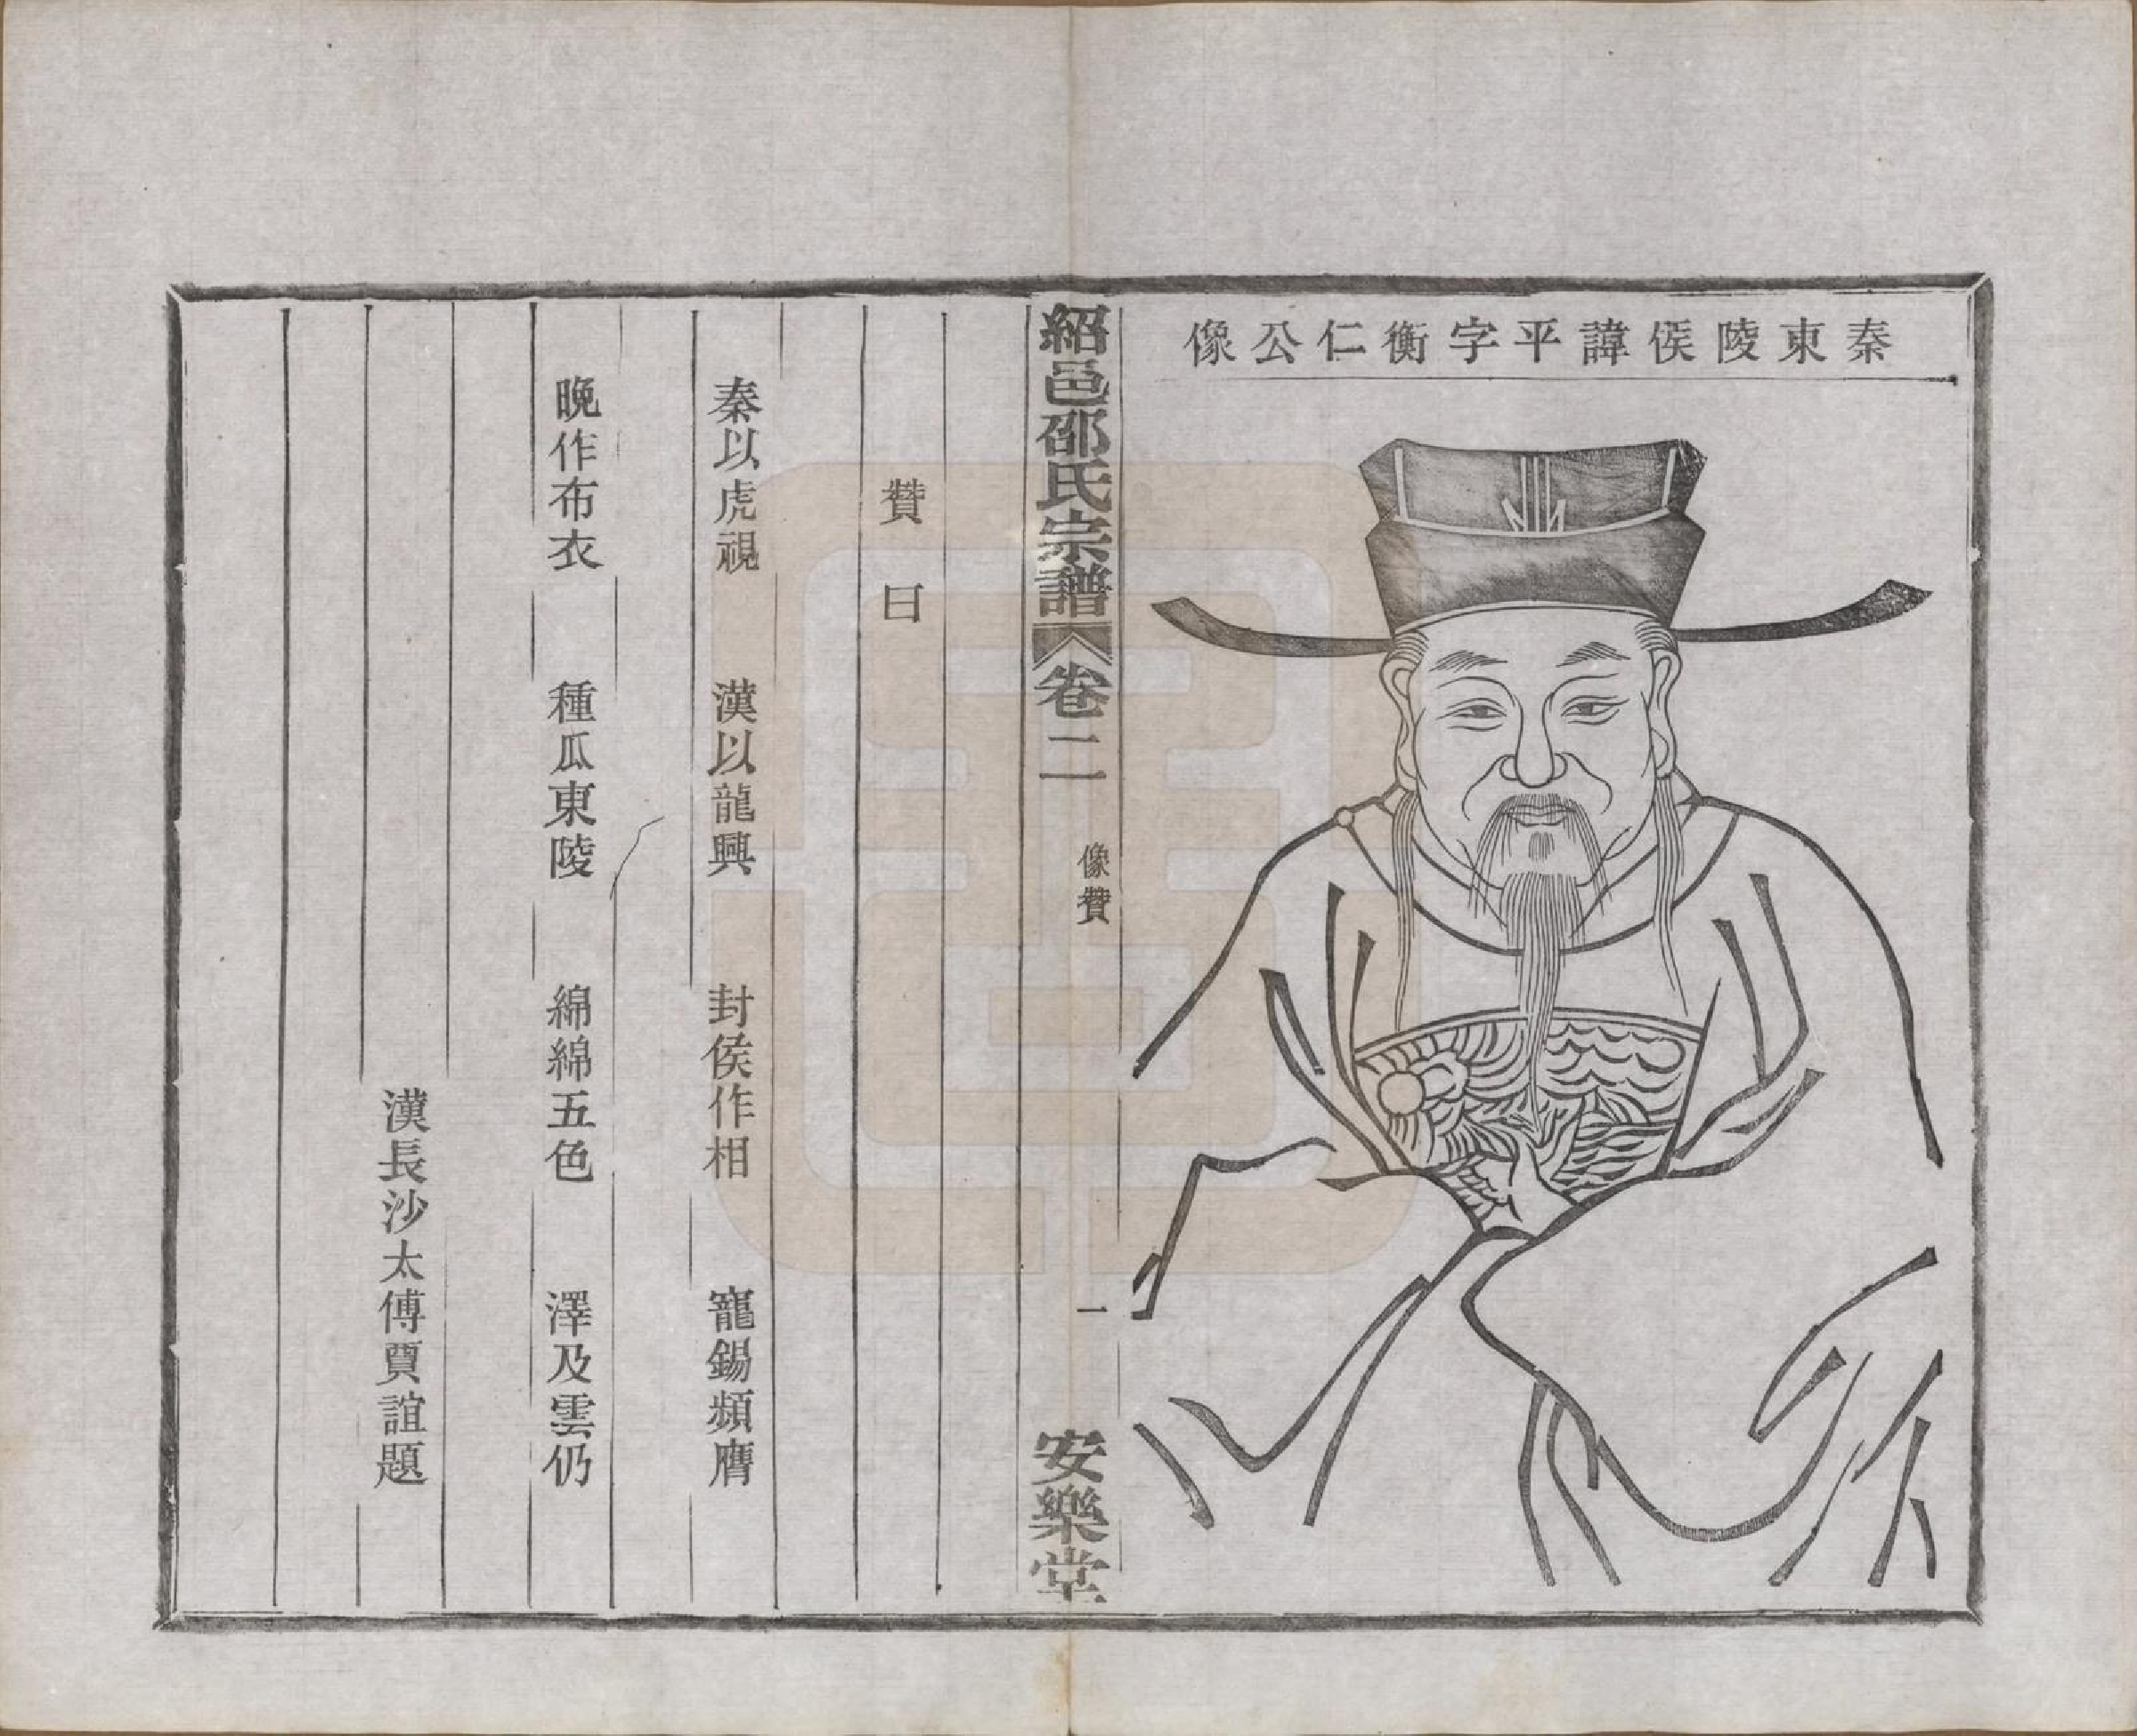 秦東陵侯諱平字衡仁公像
紹邑邵氏宗譜 卷二 像贊 一 安樂堂
贊曰
秦以虎視 漢以龍興 封侯作相 寵錫頻膺
晚作布衣 種瓜東陵 綿綿五色 澤及雲仍
漢長沙太傅賈誼題